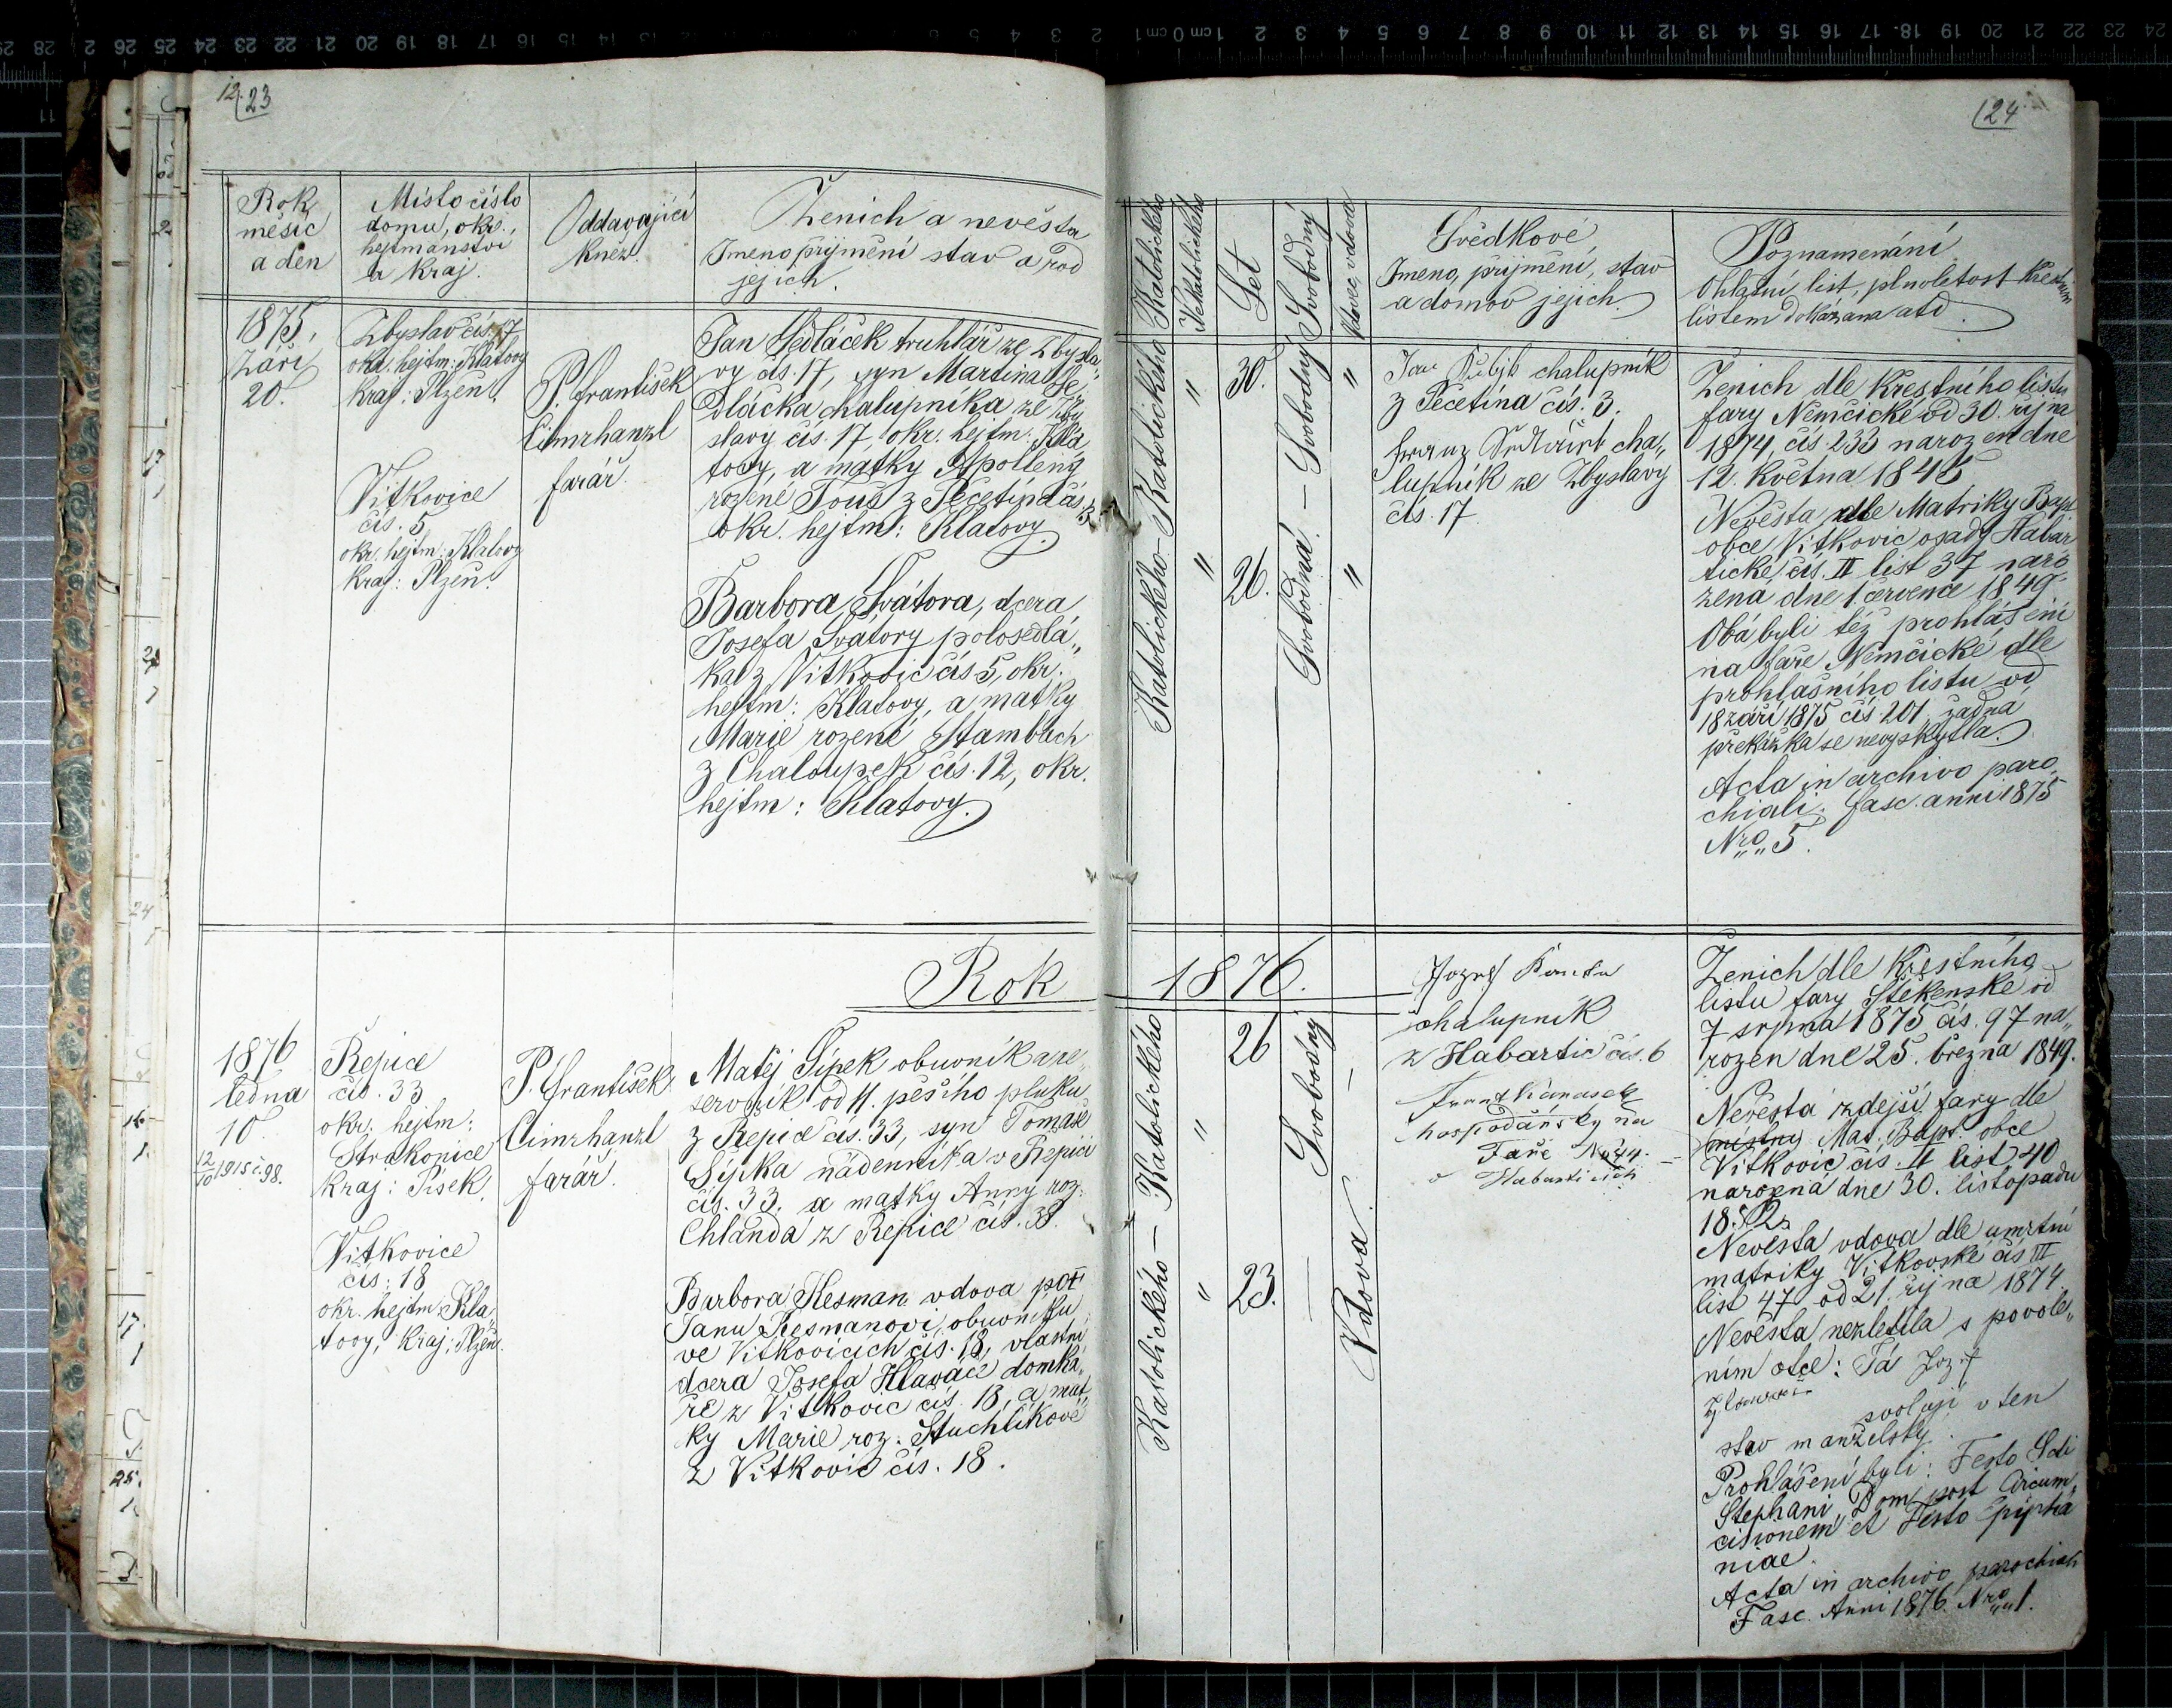 12.
23
Rok
měsíc
a den
Místo číslo
domu, okr.,
hejtmanství
a Kraj.
Oddavající
Kněz.
Ženich a nevěsta
Jmeno příjmení stav a rod
jejich.
1875,
Září
20.
Zbyslav čís. 17
okr. hejtm: Klatovy
Kraj: Plzen.
Vitkovice
čís. 5
okr. hejtm: Klatovy
Kraj: Plzen.
P. František
Cimrhanzl
farář.
Jan Sedláček truhlář ze Zbysla
vy čís. 17, syn Martina Se
dláčka chalupníka ze Zby
slavy čís. 17 okr. hejtm. Kla
tovy, a matky Apolleny
rozené Touš z Pečetína čís. 3.
okr. hejtm: Klatovy.
Barbora Svátora, dcera
Josefa Svátory polosedlá„
ka z Vitkovic čís 5, okr.
hejtm: Klatovy, a matky
Marie rozené Stambach
z Chaloupek čís. 12, okr.
hejtm: Klatovy.
Rok
1876
ledna
10.
12/10 1915 č. 98.
Řepice
čís. 33
okr. hejtm:
Strakonice
Kraj: Písek.
Vitkovice
čís: 18
okr. hejtm: Kla„
tovy, Kraj: Plzen.
P. František
Cimrhanzl
farář.
Matěj Šípek obuvník a re„
servník od 11. pěšího pluku
z Řepice čís. 33, syn Tomáše
Šípka nádenníka v Řepici
čís. 33. a matky Anny roz.
Chlanda z Řepice čís. 38.
Barbora Kesman vdova po
Janu Kesmanovi, obuvníku
ve Vitkovicich čís. 18, vlastní
dcera Josefa Hlaváče domka„
ře z Vitkovic čís. 18, a mat
ky Marie roz. Stuchlíkové
z Vitkovic čís. 18.
24
Katolického
Nekatolického
Let
Svobodný
Vdovec, vdova
Svědkové
Jmeno, příjmení, stav
a domov jejich.
Poznamenání
Ohlašní list, plnoletost Křestním
listem dokázana atd.
Katolického - Katolického
"
30.
Svobodná. — Svobodný
"
"
26.
"
Jan chalupník
z Pečetína čís. 3.
Franz cha„
lupník ze Zbyslavy
čís. 17
Ženich dle Křestního listu
fary Němčické od 30. října
1874, čís 233 narozen dne
12. května 1845
Nevěsta dle Matriky Bapt
obce Vitkovic osady Habar
tické, čís. II list 37 naro
zena dne 1 července 1849.
Oba byli též prohlášeni
na faře Němčické dle
prohlašního listu od
18 září 1875 čís 201 žadna
překážka se nevyskytla.
Acta in archivo paro„
chiali. fasc. anni 1875
Nro„ 5.
1876.
Katolického — Katolického
"
26
Svobodný
"
23.
Vdova.
Jozef
chalupník
z Habartic čís. 6
Frant
hospodářský na
Faře No 44.
v Habarticích
Ženich dle Křestního
listu fary Štěkenské od
7 srpna 1875 čís. 97 na„
rozen dne 25. března 1849.
Nevěsta zdejší fary dle
místny Mat. Bapt. obce
Vitkovic čís. II list 40
narozná dne 30. listopadu
1852.
Nevěsta vdova dle umrtní
matriky Vitkovské čís III
list 47 od 21. října 1874.
Nevěsta nezletila s povole„
ním otce: Já Jozef
svoluji v ten
stav manželský.
Prohlášeni byli: Festo Scti
Stephani, Dom post Circum„
cisionem et Festo Epipha
niae.
Acta in archivo parochiali
Fasc. Anni 1876. Nro„ 1.